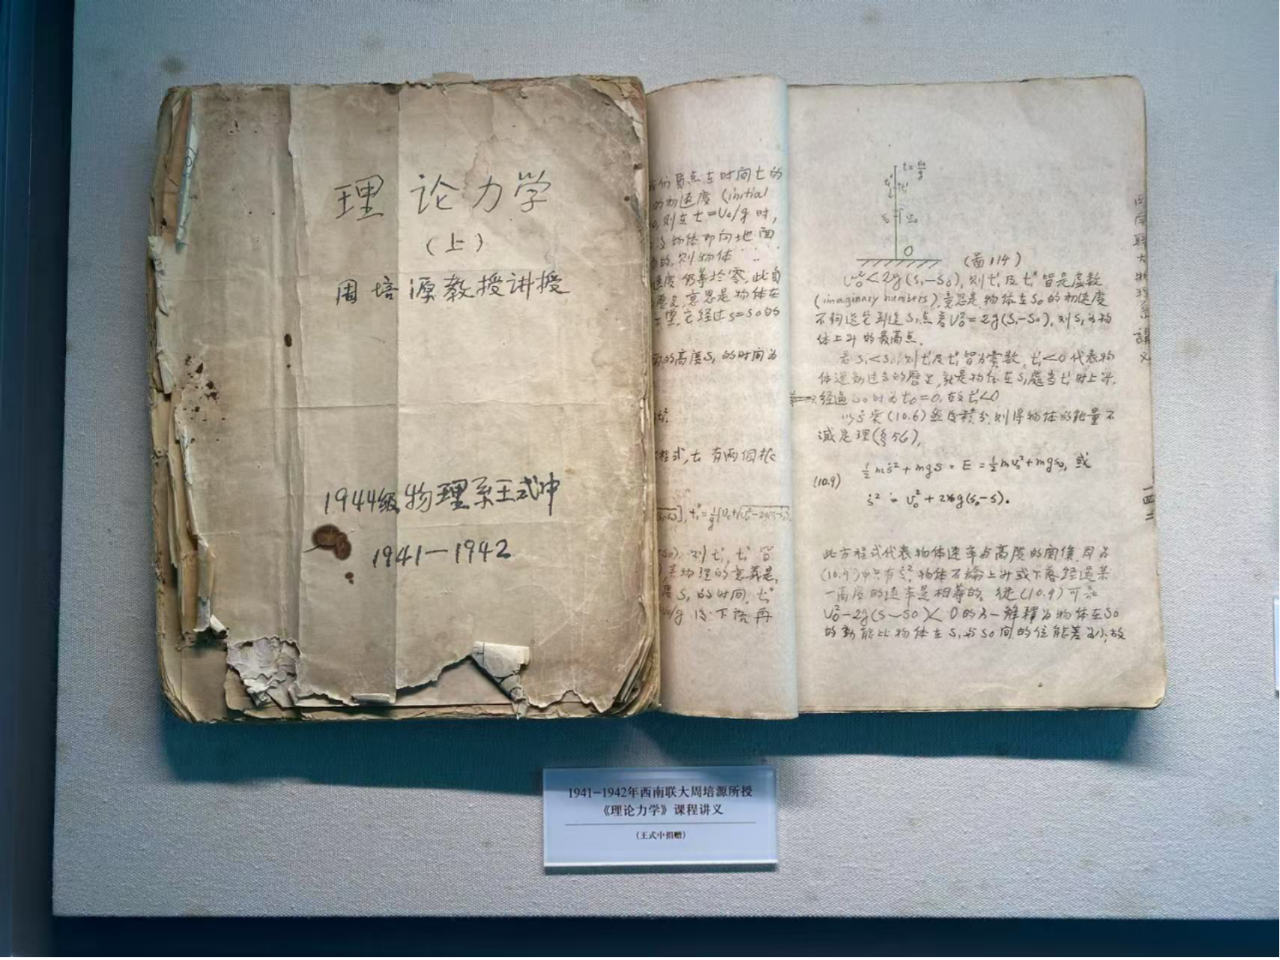 理论力学
（上）
周培源教授讲授
1944级物理系王式中
1941—1942
质点与时间t的
初速度 (initial
则在 t=V₀/g 时,
物体即向地面
的, 则物体
速度仍等於零, 此自
意思是物体在
它经过 s=s₀ 的
的高度 S₁ 的时间为
程式, t₁ 有两個根
(图114)
V₀²<2g(S₁-S₀), 则 t₁' 及 t₁'' 皆是虚数
(imaginary numbers), 意思是物体在 S₀ 的初速度
不夠送它到达 S₁点, 若 V₀²=2g(S₁-S₀), 则 S₁ 为物
体上升的最高点.
若 S₁<S₀, 则 t₁' 及 t₁'' 皆为实数, t₁'<0 代表物
体运动过去的歷史, 就是物体在 S₁處当 t₁' 时上升,
经过 S₀ 时为 t₀=0, 故 t₁'<0
以 ṡ 乘 (10.6) 並積分, 则得物体的能量不
減定理(§56),
½mṡ²+mgs = E = ½mv₀²+mgs₀, 或
(10.9)
ṡ² = v₀²+2g(s₀-s).
此方程式代表物体速率与高度的関係, 因为
(10.9)中只有 ṡ², 物体不論上升或下落, 经过某
一高度的速率是相等的. 从(10.9)可知
V₀²-2g(S₁-S₀)<0 的另一解釋为物体在 S₀
的動能比物体在 S₁ 与 S₀ 间的位能差为小, 故
西南联大物理系講义
一四二
1941-1942年西南联大周培源所授
《理论力学》课程讲义
（王式中捐赠）